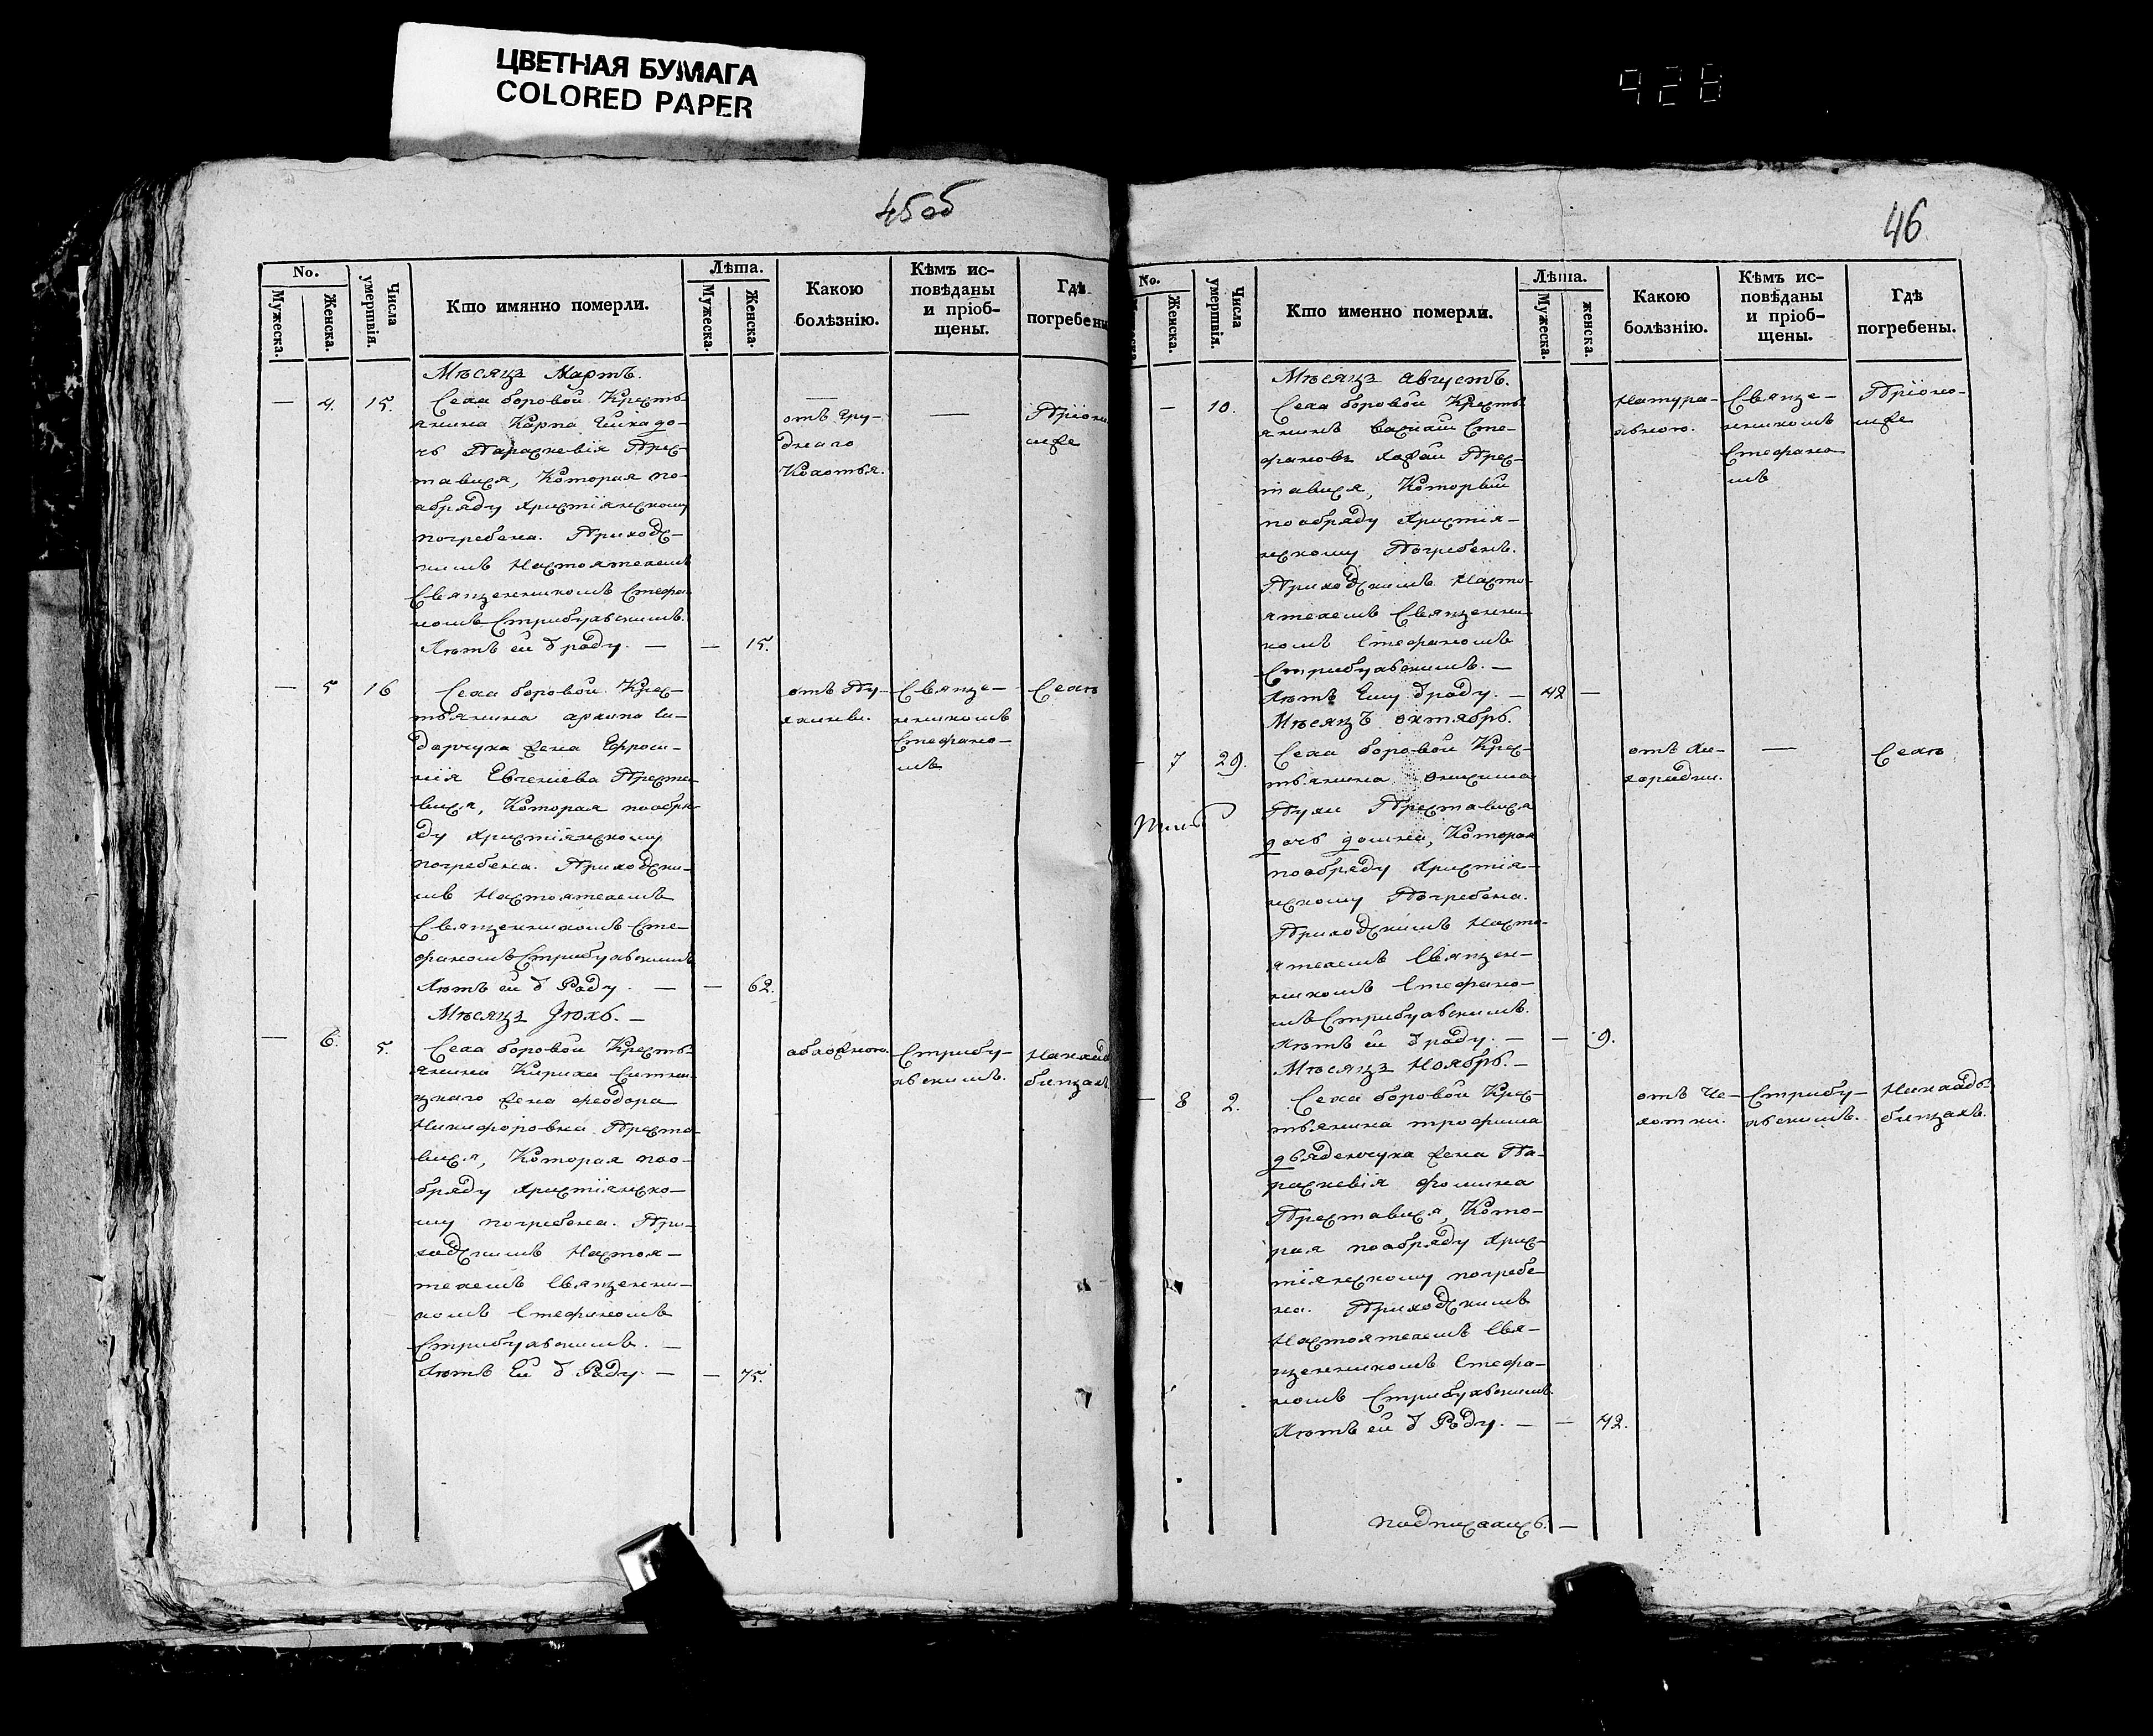 ЦВЕТНАЯ БУМАГА
COLORED PAPER
928
45 об
No.
Мужеска.
Женска.
Числа умертвія.
Кто имянно померли.
Лѣта.
Мужеска.
Женска.
Какою болѣзнію.
Кѣмъ ис-
повѣданы
и пріоб-
щены.
Гдѣ
погребены
Мѣсяцъ Мартъ.
— 4. 15.
Села боровой Кресть-
янина Карпа
чь Параскевія Прес-
тавися, Которая по-
абряду Христіянскому
погребена. Приходс-
кимъ Настоятелемъ
Священникомъ Стефа-
номъ Стрибульскимъ.
Лѣтъ ей ѿ роду. — — 15.
отъ гру-
днаго
Колотья.
—
— 5 16
Села боровой Крес-
тьянина архипа
жена Ефроси-
нія Евгеніева Преста-
вися, Которая пообря-
ду Христіянскому
погребена. Приходски-
мъ Настоятелемъ
Священникомъ Сте-
фаномъ Стрибульскимъ
Лѣтъ ей ѿ Роду. — — 62.
Свяще-
нникомъ
Стефано-
мъ
Мѣсяцъ Іюль. —
— 6. 5.
Села боровой Кресть-
янина Кирила
жена феодора
Никифоровна Преста-
вися, Которая поо-
бряду Христіянско-
му погребена. При-
ходскимъ Настоя-
телемъ Священни-
комъ Стефаномъ
Стрибульскимъ. —
Лѣтъ ей ѿ Роду. — — 75.
Стрибу-
льскимъ.
46
No.
Женска.
Числа умертвія.
Кто именно померли.
Лѣта.
Мужеска.
женска.
Какою болѣзнію.
Кѣмъ ис-
повѣданы
и пріоб-
щены.
Гдѣ
погребены.
Мѣсяцъ августъ.
— 10.
Села боровой Кресть-
янинъ Сте-
фановъ Прес-
тавися, Который
пообряду Христія-
нскому Погребенъ.
Приходскимъ Насто-
ятелемъ Священни-
комъ Стефаномъ
Стрибульскимъ. —
Лѣтъ Ему ѿ роду. — 42 —
натура-
льною.
Свяще-
нникомъ
Стефано
мъ
Мѣсяцъ октябрь.
— 7 29.
Села боровой Крес-
тьянина онисима
Преставися
дочь домна, Которая
пообряду Христія-
нскому Погребена.
Приходскимъ Насто-
ятелемъ Священ-
никомъ Стефано-
мъ Стрибульскимъ.
Лѣтъ ей ѿ роду. — — 9.
отъ Ли-
хорадки.
—
Мѣсяцъ Ноябрь. —
— 8 2.
Села боровой Крес-
тьянина трофима
жена Па-
раскевія фомина
Преставися, Кото-
рая пообряду Хрис-
тіянскому погребе-
на. Приходскимъ
Настоятелемъ Свя-
щенникомъ Стефа-
номъ Стрибульскимъ.
Лѣтъ ей ѿ Роду. — — 42.
отъ Че-
хотки.
Стрибу-
льскимъ.
подписались. —